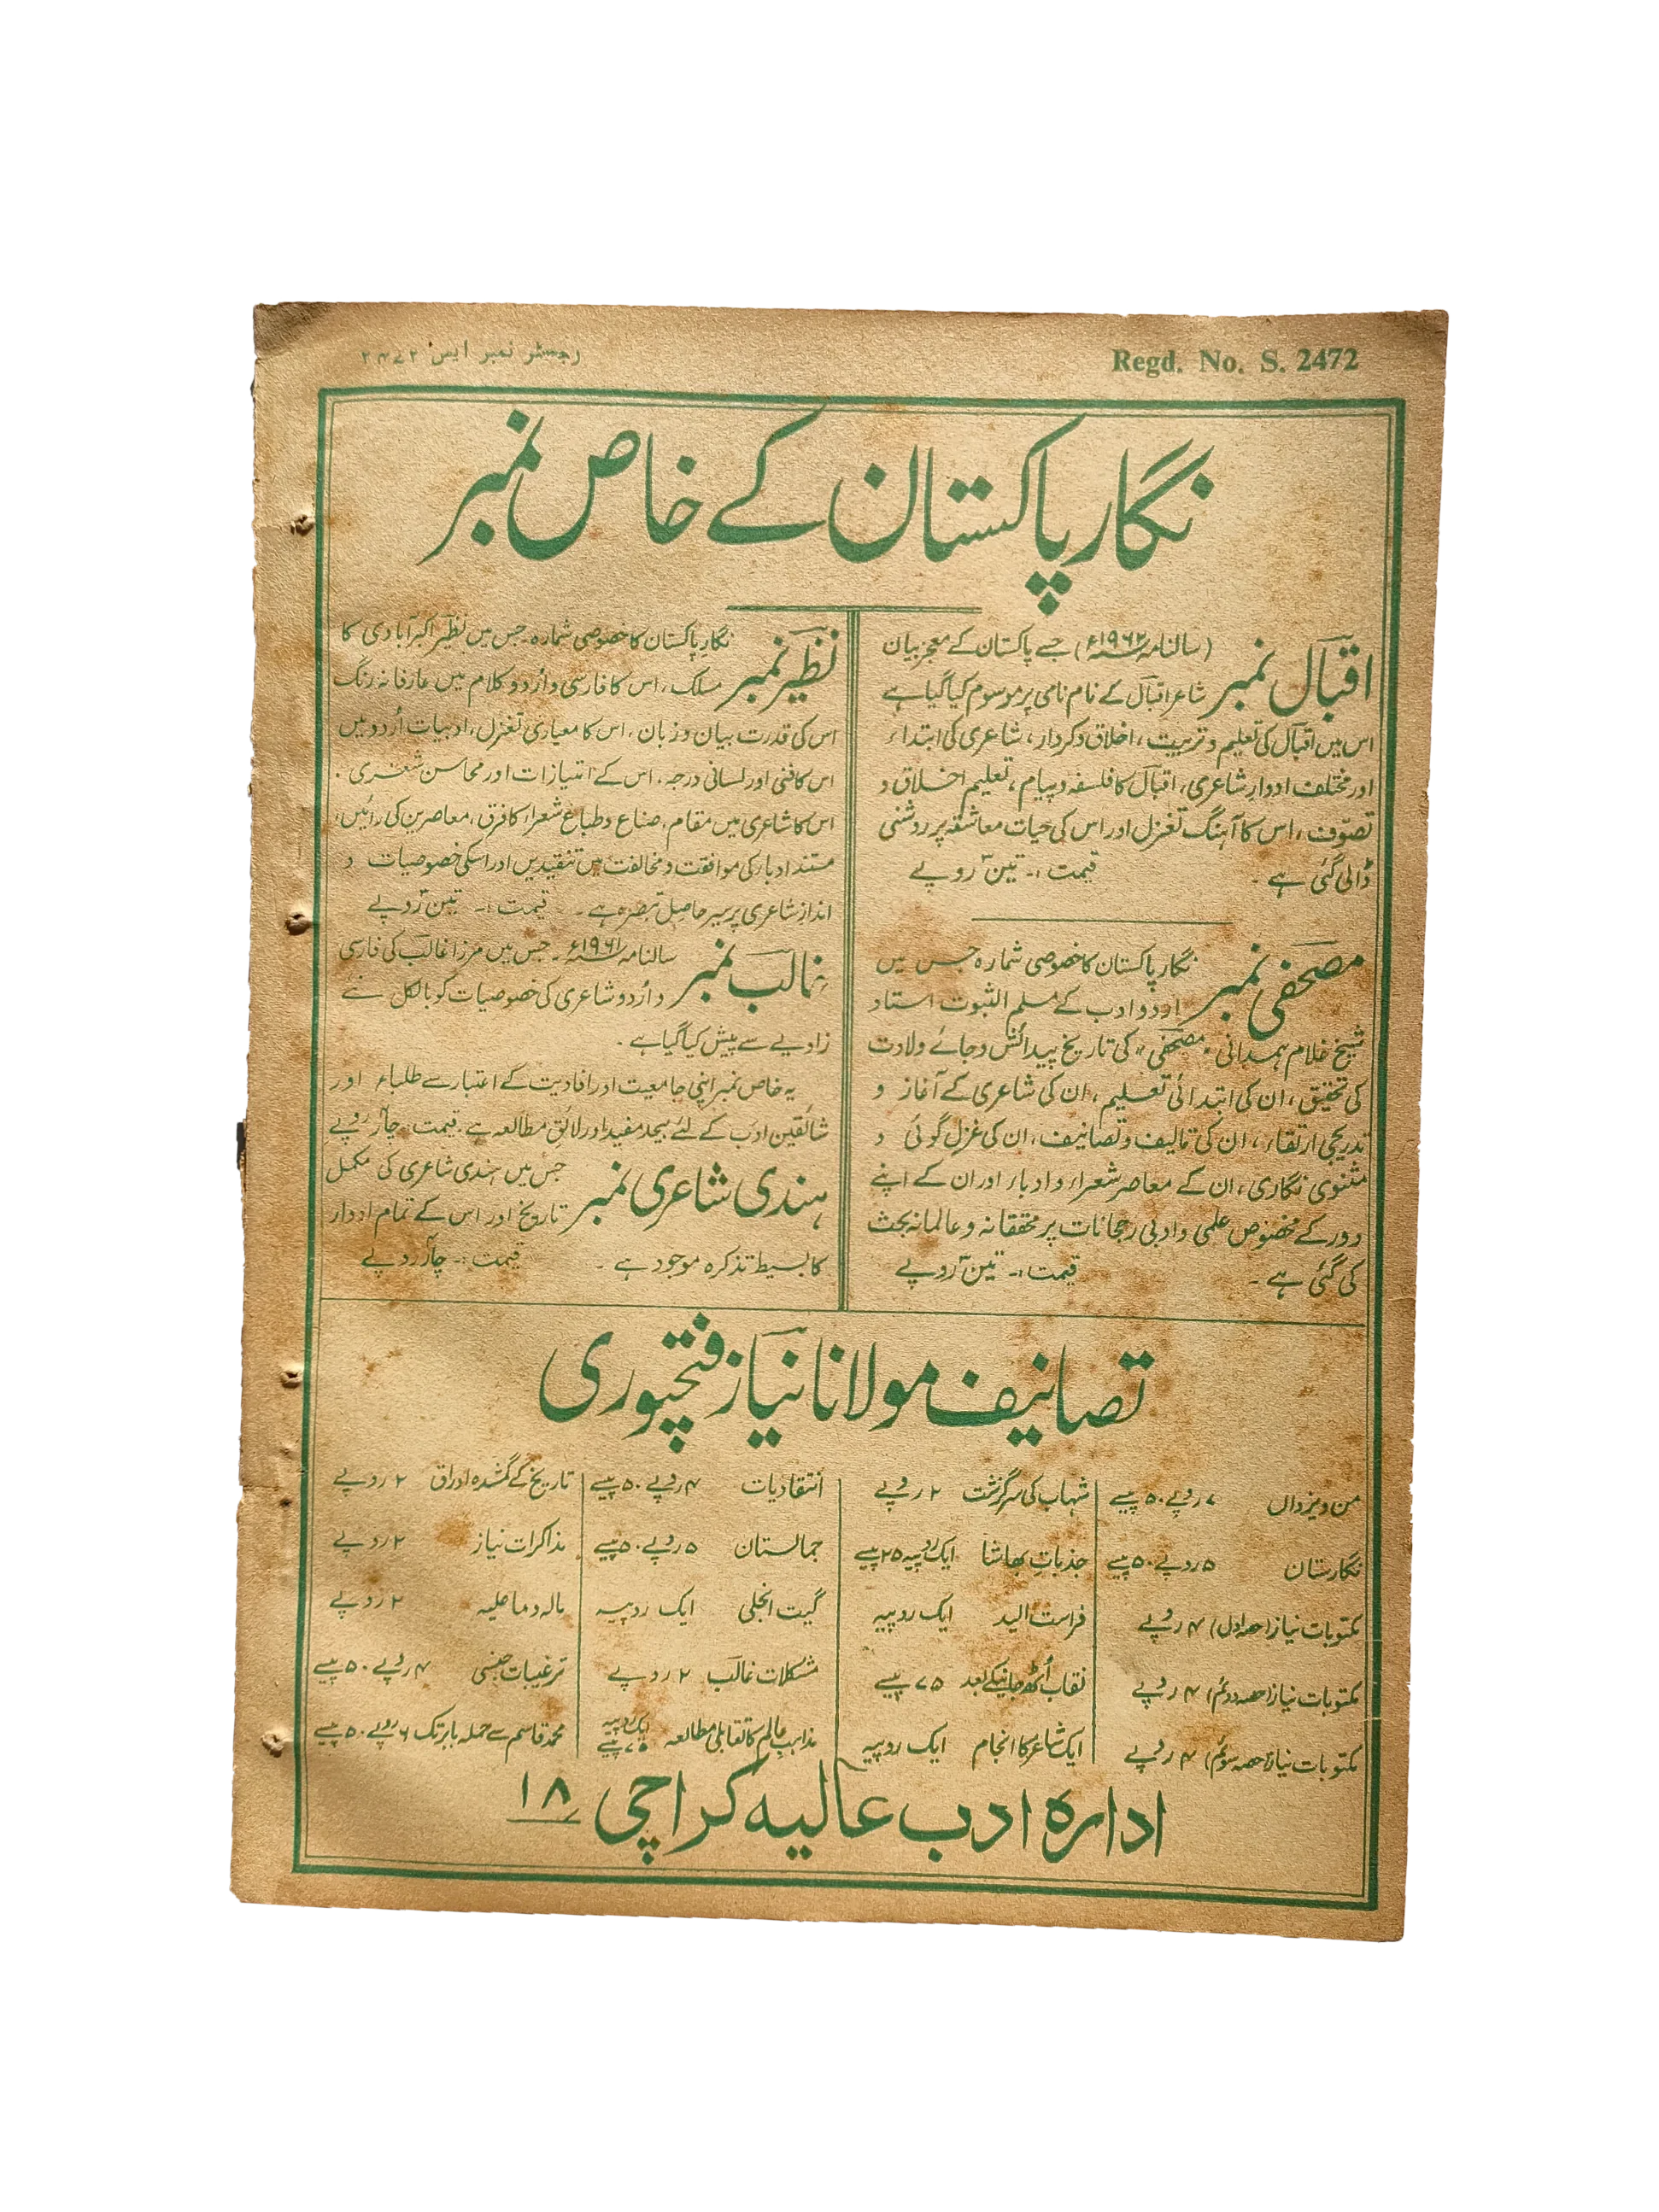 Regd. No. S. 2472
رجسٹر نمبر ایس ۲۴۷۲
نگار پاکستان کے خاص نمبر
اقبال نمبر
(سالنامہ ۱۹۶۲ء) جسے پاکستان کے معجز بیان
شاعر اقبال کے نام نامی پر موسوم کیا گیا ہے
اس میں اقبال کی تعلیم و تربیت، اخلاق و کردار، شاعری کی ابتداء
اور مختلف ادوار شاعری، اقبال کا فلسفہ و پیام، تعلیم اخلاق و
تصوّف، اس کا آہنگ تغزل اور اس کی حیات معاشقہ پر روشنی
ڈالی گئی ہے۔ قیمت :۔ تین روپے
مصحفی نمبر
نگار پاکستان کا خصوصی شمارہ جس میں
اردو ادب کے مسلم الثبوت استاد
شیخ غلام ہمدانی "مصحفی" کی تاریخ پیدائش و جائے ولادت
کی تحقیق، ان کی ابتدائی تعلیم، ان کی شاعری کے آغاز و
تدریجی ارتقاء، ان کی تالیف و تصانیف، ان کی غزل گوئی و
مثنوی نگاری، ان کے معاصر شعراء و ادباء اور ان کے اپنے
دور کے مخصوص علمی و ادبی رجحانات پر محققانہ و عالمانہ بحث
کی گئی ہے۔ قیمت :۔ تین روپے
نظیر نمبر
نگار پاکستان کا خصوصی شمارہ۔ جس میں نظیر اکبر آبادی کا
مسلک، اس کا فارسی و اُردو کلام میں عارفانہ رنگ
اس کی قدرت بیان و زبان، اس کا معیاری تغزل، ادبیات اُردو میں
اس کا فنی اور لسانی درجہ، اس کے امتیازات اور محاسن شعری،
اس کا شاعری میں مقام، صناع و طباع شعراء کا فرق، معاصرین کی رائیں،
مستند ادباء کی موافقت و مخالفت میں تنقیدیں اور اسکی خصوصیات و
انداز شاعری پر سیر حاصل تبصرہ ہے۔ قیمت :۔ تین روپے
غالب نمبر
سالنامہ ۱۹۶۱ء۔ جس میں مرزا غالب کی فارسی
و اُردو شاعری کی خصوصیات کو بالکل نئے
زاویے سے پیش کیا گیا ہے۔
یہ خاص نمبر اپنی جامعیت اور افادیت کے اعتبار سے طلباء اور
شائقین ادب کے لئے بیحد مفید اور لائق مطالعہ ہے۔ قیمت :۔ چار روپے
ہندی شاعری نمبر
جس میں ہندی شاعری کی مکمل
تاریخ اور اس کے تمام ادوار
کا بسیط تذکرہ موجود ہے۔ قیمت :۔ چار روپے
تصانیف مولانا نیاز فتحپوری
من و یزداں ۷ روپے ۵۰ پیسے
نگارستان ۵ روپے ۵۰ پیسے
مکتوبات نیاز (حصہ اول) ۴ روپے
مکتوبات نیاز (حصہ دوئم) ۴ روپے
مکتوبات نیاز (حصہ سوئم) ۴ روپے
شہاب کی سرگزشت ۲ روپے
جذبات بھاشا ایک روپیہ ۲۵ پیسے
فراست الید ایک روپیہ
نقاب اُٹھ جانیکے بعد ۷۵ پیسے
ایک شاعر کا انجام ایک روپیہ
انتقادیات ۴ روپے ۵۰ پیسے
جمالستان ۵ روپے ۵۰ پیسے
گیت انجلی ایک روپیہ
مشکلات غالب ۲ روپے
مذاہب عالم کا تقابلی مطالعہ ایک روپیہ ۷۵ پیسے
تاریخ کے گمشدہ اوراق ۲ روپے
مذاکرات نیاز ۲ روپے
مالہ و ماعلیہ ۲ روپے
ترغیبات جنسی ۴ روپے ۵۰ پیسے
محمد قاسم سے حملہ بابر تک ۶ روپے ۵۰ پیسے
ادارہ ادب عالیہ کراچی ۱۸